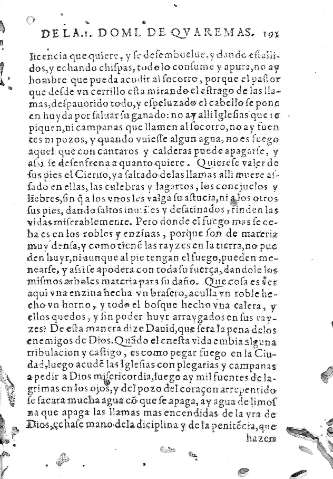 DE LA.1. DOMI. DE QVAREMAS. 193
licencia que quiere, y se desembuelue, y dando estalli-
dos, y echando chispas, todo lo consume y apura, no ay
hombre que pueda acudir al socorro, porque el pastor
que desde vn cerrillo esta mirando el estrago de las lla-
mas, despauorido todo, y espeluzado el cabello se pone
en huyda por saluar su ganado: no ay alli Iglesias que ro
piquen, ni campanas que llamen al socorro, no ay fuen
tes ni pozos, y quando vuiesse algun agua, no es fuego
aquel que con cantaros y calderas puede apagarse, y
assi se desenfrena a quanto quiere. Quierese valer de
sus pies el Cieruo, ya saltado de las llamas alli muere as-
sado en ellas, las culebras y lagartos, los conejuelos y
liebres, sin q̃ a los vnos les valga su astucia, ni a los otros
sus pies, dando saltos y desatinados, rinden las
vidas miserablemente. Pero donde el fuego mas se ce-
ba es en los robles y enzinas, porque son de materia
muy densa, y como tienē las rayzes en la tierra, no pue
den huyr, ni aunque al pie tengan el fuego, pueden me-
nearse, y assi se apodera con toda su fuerça, dandole los
mismos arboles materia para su daño. Que cosa es ver
aqui vna enzina hecha vn brasero, aculla vn roble he-
cho vn horno, y todo el bosque hecho vna calera, y
ellos quedos, y sin poder huyr arraygados en sus ray-
zes? De esta manera dize Dauid, que sera la pena de los
enemigos de Dios. Quādo el en esta vida embia alguna
tribulacion y castigo, es como pegar fuego en la Ciu-
dad, luego acudē las Iglesias con plegarias y campanas
a pedir a Dios misericordia, luego ay mil fuentes de la-
grimas en los ojos, y del pozo del coraçon arrepentido
se sacara mucha agua cō que se apaga, ay agua de limos
na que apaga las llamas mas encendidas de la yra de
Dios, echase mano de la diciplina y de la penitēcia, que
hazen